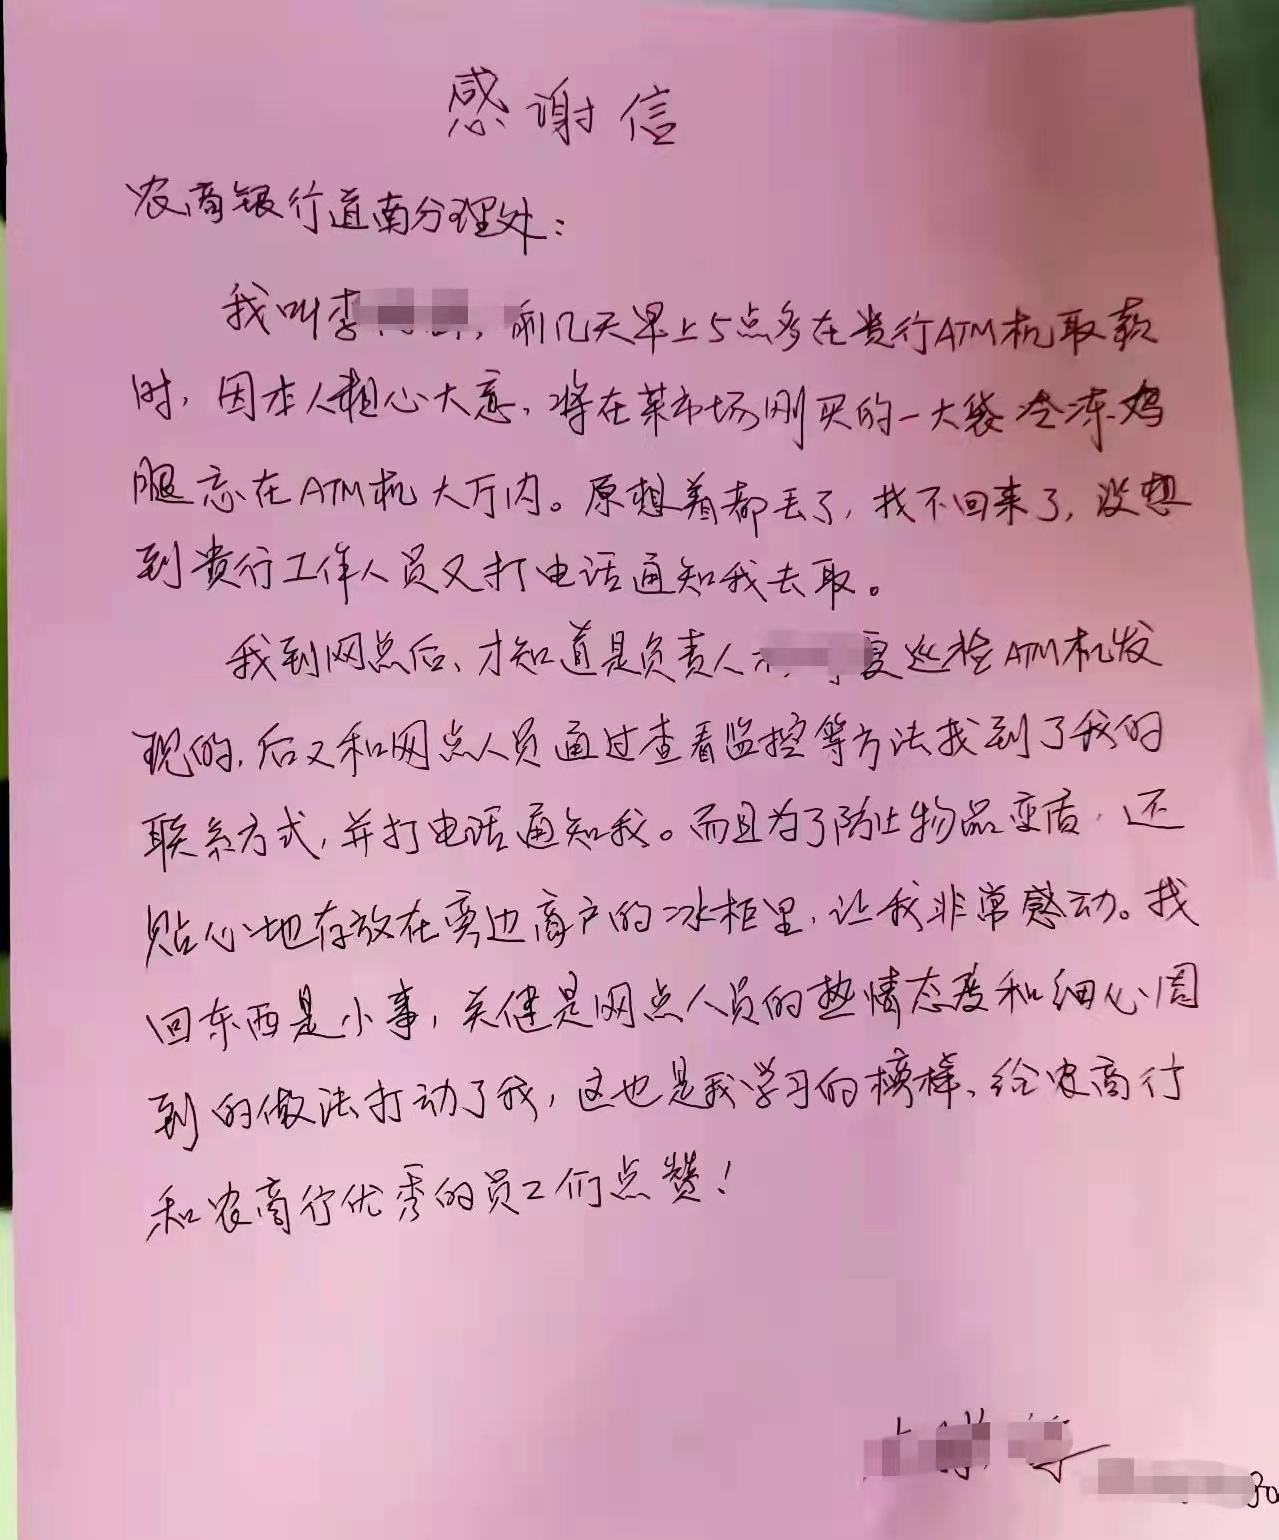 感谢信
农商银行道南分理处:
我叫李 , 前几天早上5点多在贵行ATM机取款
时, 因本人粗心大意, 将在菜市场刚买的一大袋冷冻鸡
腿忘在ATM机大厅内。原想着都丢了, 找不回来了, 没想
到贵行工作人员又打电话通知我去取。
我到网点后、才知道是负责人 夏巡检ATM机发
现的, 后又和网点人员通过查看监控等方法找到了我的
联系方式, 并打电话通知我。而且为了防止物品变质, 还
贴心地存放在旁边商户的冰柜里, 让我非常感动。找
回东西是小事, 关健是网点人员的热情态度和细心周
到的做法打动了我, 这也是我学习的榜样、给农商行
和农商行优秀的员工们点赞!
30